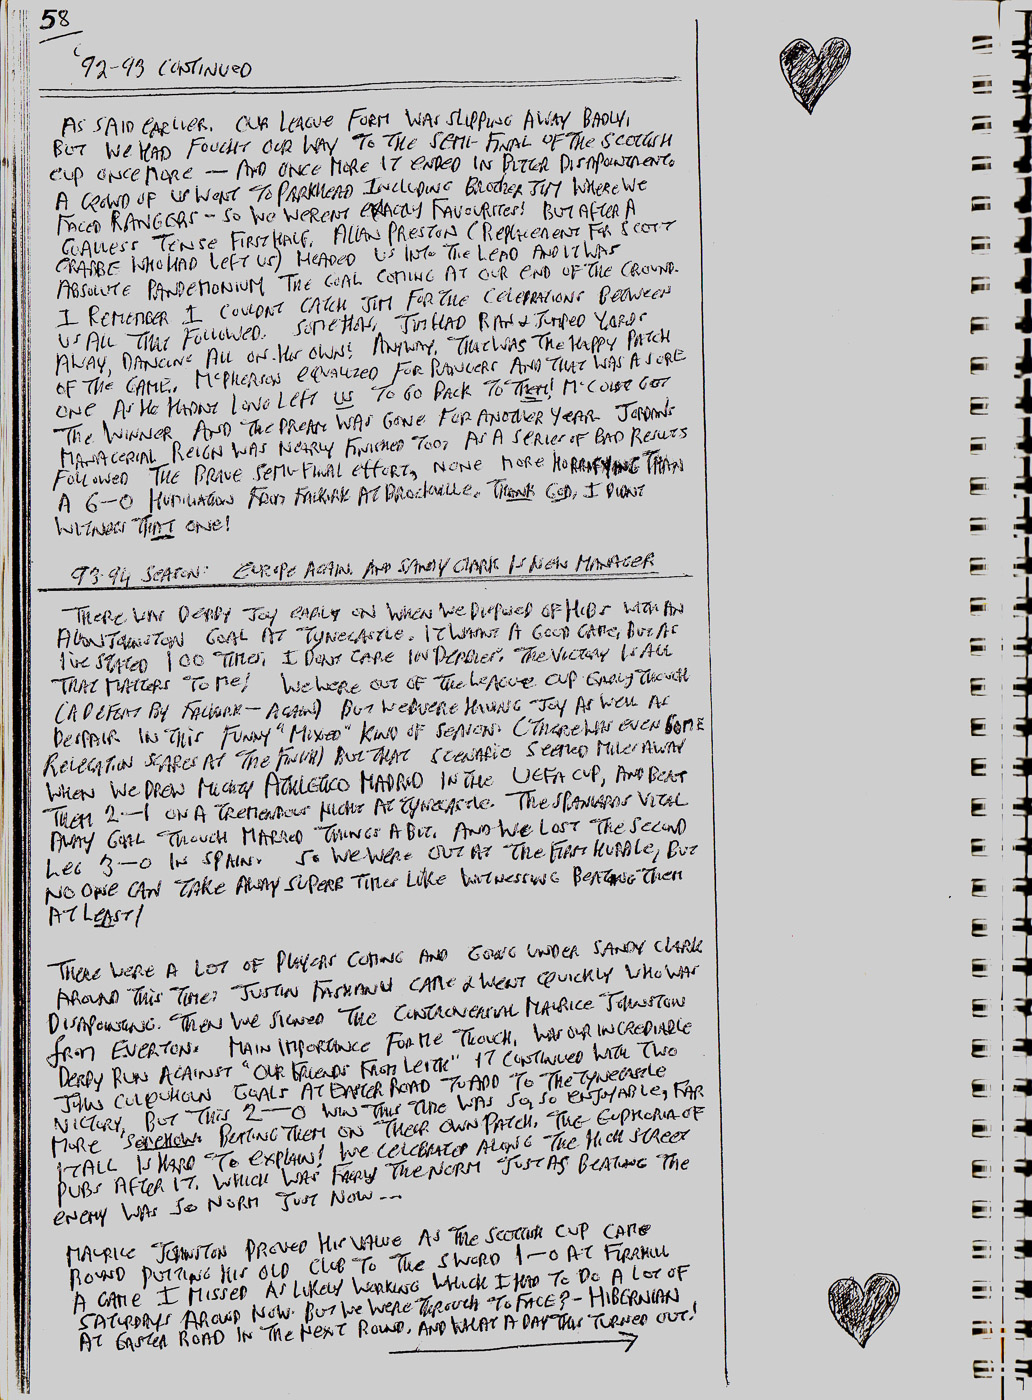 58
'92-93 CONTINUED
AS SAID EARLIER, OUR LEAGUE FORM WAS SLIPPING AWAY BADLY,
BUT WE HAD FOUGHT OUR WAY TO THE SEMI-FINAL OF THE SCOTTISH
CUP ONCE MORE — AND ONCE MORE IT ENDED IN BITTER DISAPOINTMENT.
A CROWD OF US WENT TO PARKHEAD INCLUDING BROTHER JIM WHERE WE
FACED RANGERS - SO WE WERENT EXACTLY FAVOURITES! BUT AFTER A
GOALLESS TENSE FIRST HALF, ALLAN PRESTON (REPLACEMENT FOR SCOTT
CRABBE WHO HAD LEFT US) HEADED US INTO THE LEAD AND IT WAS
ABSOLUTE PANDEMONIUM THE GOAL COMING AT OUR END OF THE GROUND.
I REMEMBER I COULDNT CATCH JIM FOR THE CELEBRATIONS BETWEEN
US ALL THAT FOLLOWED. SOMEHOW, JIM HAD RAN & JUMPED YARDS
AWAY, DANCING ALL ON HIS OWN! ANYWAY, THAT WAS THE HAPPY PATCH
OF THE GAME. McPHERSON EQUALIZED FOR RANGERS AND THAT WAS A SORE
ONE AS HE HADNT LONG LEFT US TO GO BACK TO THEM! McCOIST GOT
THE WINNER AND THE DREAM WAS GONE FOR ANOTHER YEAR. JORDANS
MANAGERIAL REIGN WAS NEARLY FINISHED TOO, AS A SERIES OF BAD RESULTS
FOLLOWED THE BRAVE SEMI-FINAL EFFORT, NONE MORE HORRIFYING THAN
A 6-0 HUMILIATION FROM FALKIRK AT BROCKVILLE. THANK GOD, I DIDNT
WITNESS THAT ONE!
93-94 SEASON: EUROPE AGAIN AND SANDY CLARK IS NEW MANAGER
THERE WAS DERBY JOY EARLY ON WHEN WE DISPOSED OF HIBS WITH AN
ALLAN JOHNSTON GOAL AT TYNECASTLE. IT WASNT A GOOD GAME, BUT AS
I'VE STATED 100 TIMES, I DONT CARE IN DERBIES. THE VICTORY IS ALL
THAT MATTERS TO ME! WE WERE OUT OF THE LEAGUE CUP EARLY THOUGH
(A DEFEAT BY FALKIRK - AGAIN) BUT WE WERE HAVING JOY AS WELL AS
DESPAIR IN THIS FUNNY "MIXED" KIND OF SEASON. (THERE WAS EVEN SOME
RELEGATION SCARES AT THE FINISH) BUT THAT SCENARIO SEEMED MILES AWAY
WHEN WE DREW MIGHTY ATHLETICO MADRID IN THE UEFA CUP, AND BEAT
THEM 2-1 ON A TREMENDOUS NIGHT AT TYNECASTLE. THE SPANIARDS VITAL
AWAY GOAL THOUGH MARRED THINGS A BIT. AND WE LOST THE SECOND
LEG 3-0 IN SPAIN. SO WE WERE OUT AT THE FIRST HURDLE, BUT
NO ONE CAN TAKE AWAY SUPERB TIMES LIKE WITNESSING BEATING THEM
AT LEAST!
THERE WERE A LOT OF PLAYERS COMING AND GOING UNDER SANDY CLARK
AROUND THIS TIME: JUSTIN FASHANU CAME & WENT QUICKLY WHO WAS
DISAPOINTING. THEN WE SIGNED THE CONTROVERSIAL MAURICE JOHNSTON
FROM EVERTON. MAIN IMPORTANCE FOR ME THOUGH, WAS OUR INCREDIABLE
DERBY RUN AGAINST "OUR FRIENDS FROM LEITH" IT CONTINUED WITH TWO
JOHN COLQUHOUN GOALS AT EASTER ROAD TO ADD TO THE TYNECASTLE
VICTORY, BUT THIS 2-0 WIN THIS TIME WAS SO, SO ENJOYABLE, FAR
MORE SOMEHOW. BEATING THEM ON THEIR OWN PATCH. THE EUPHORIA OF
IT ALL IS HARD TO EXPLAIN! WE CELEBRATED ALONG THE HIGH STREET
PUBS AFTER IT. WHICH WAS FAIRLY THE NORM JUST AS BEATING THE
ENEMY WAS SO NORM JUST NOW ---
MAURICE JOHNSTON PROVED HIS VALUE AS THE SCOTTISH CUP CAME
ROUND PUTTING HIS OLD CLUB TO THE SWORD 1-0 AT FIRRHILL
A GAME I MISSED AS LIKELY WORKING WHICH I HAD TO DO A LOT OF
SATURDAYS AROUND NOW. BUT WE WERE THROUGH TO FACE? - HIBERNIAN
AT EASTER ROAD IN THE NEXT ROUND. AND WHAT A DAY THIS TURNED OUT!